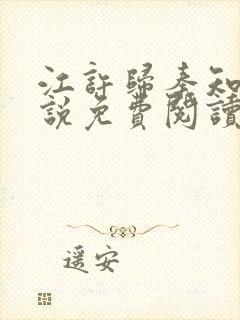 江許歸秦知
說免費閱讀
遥安